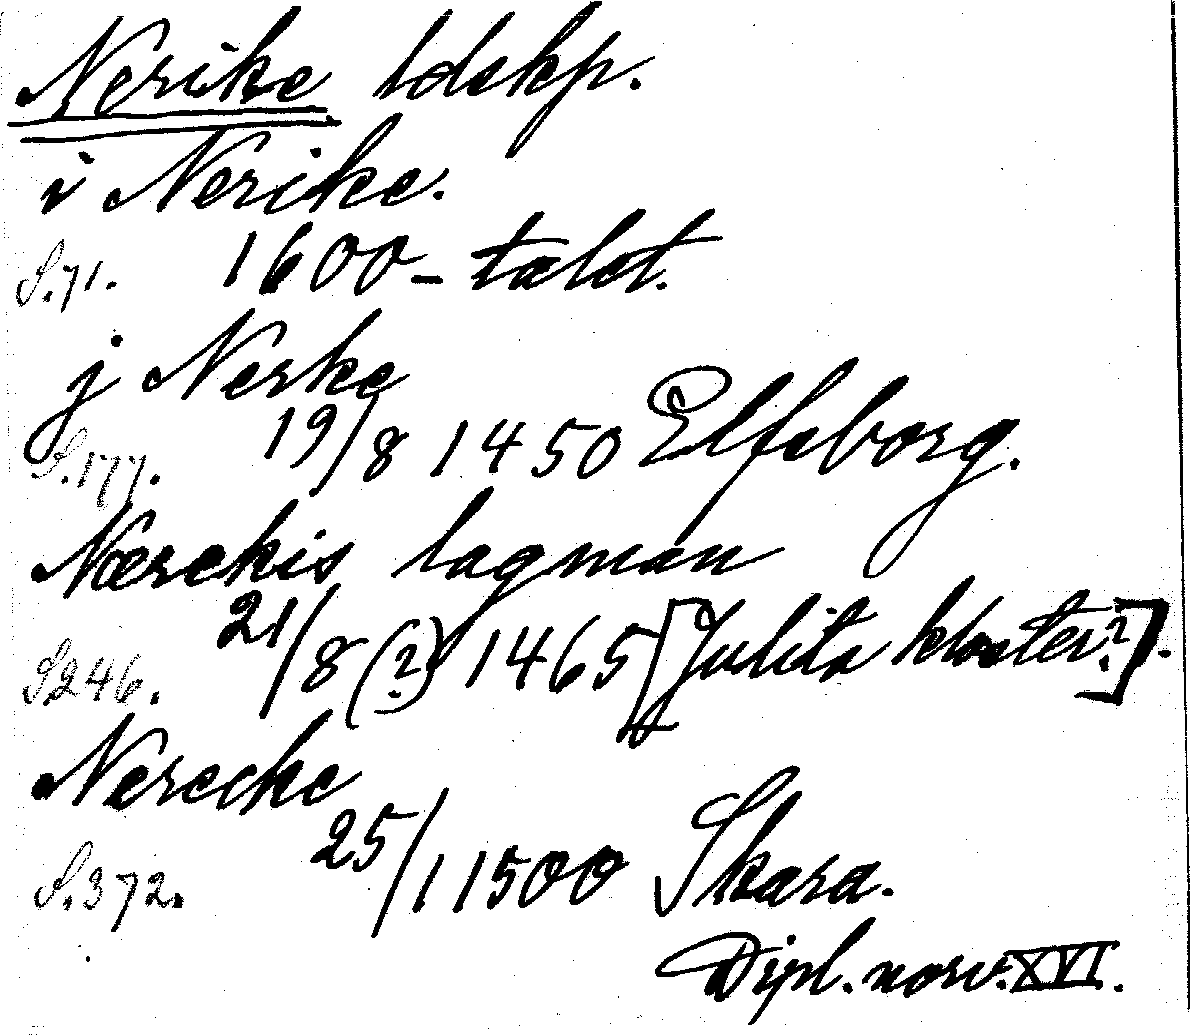 Nerike ldskp.
i Nerike.
S.71. 1600-talet.
j Nerke
S.177. 19/8 1450 Elfsborg.
Nærekis lagman
S246. 21/8 (?) 1465 [Julita kloster?].
Nerecke
S.372. 25/1 1500 Skara.
Dipl. norv. XVI.